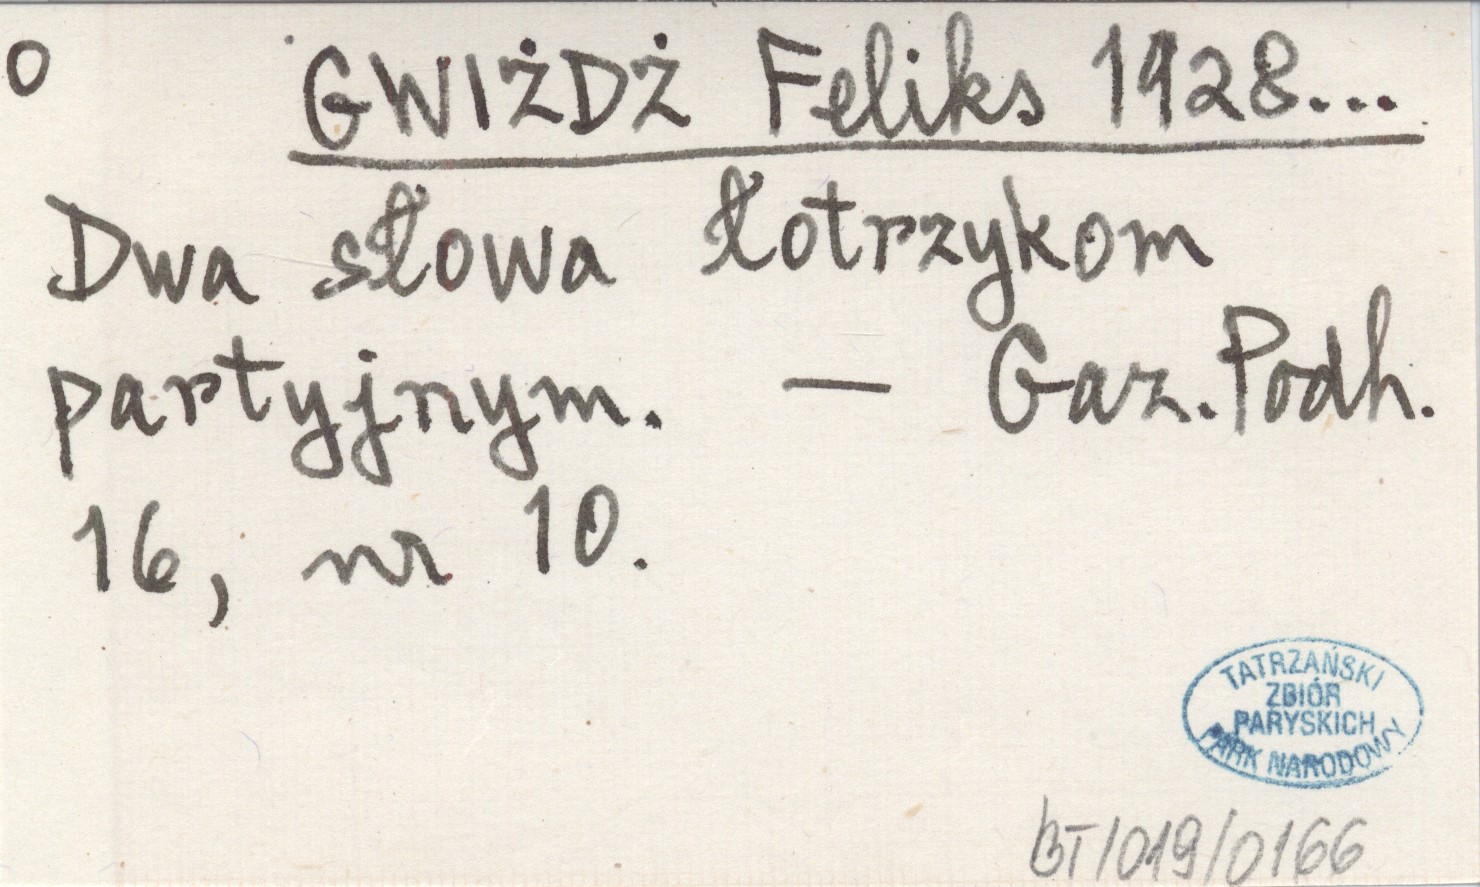 o GWIŻDŻ Feliks 1928...
Dwa słowa łotrzykom
partyjnym. — Gaz. Podh.
16, nr 10.
TATRZAŃSKI
ZBIÓR
PARYSKICH
PARK NARODOWY
BT/019/0166